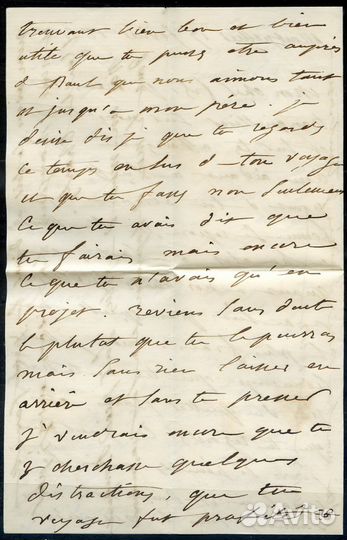 trouvant bien bon et bien
utile que tu puisses être auprès
de Paul que nous aimons tant
et jusqu'à mon père. je
désire dis je que tu regardes
ce temps en sus d ton voyage
et que tu fasses non seulement
ce que tu avais dit que
tu ferais mais encore
ce que tu n'avais qu'en
projet. reviens sans doute
le plutot que tu le pourras
mais sans rien laisser en
arrière et sans te presser
j voudrais encore que tu
y cherchasses quelques
distractions, que ton
voyage fut
Avito